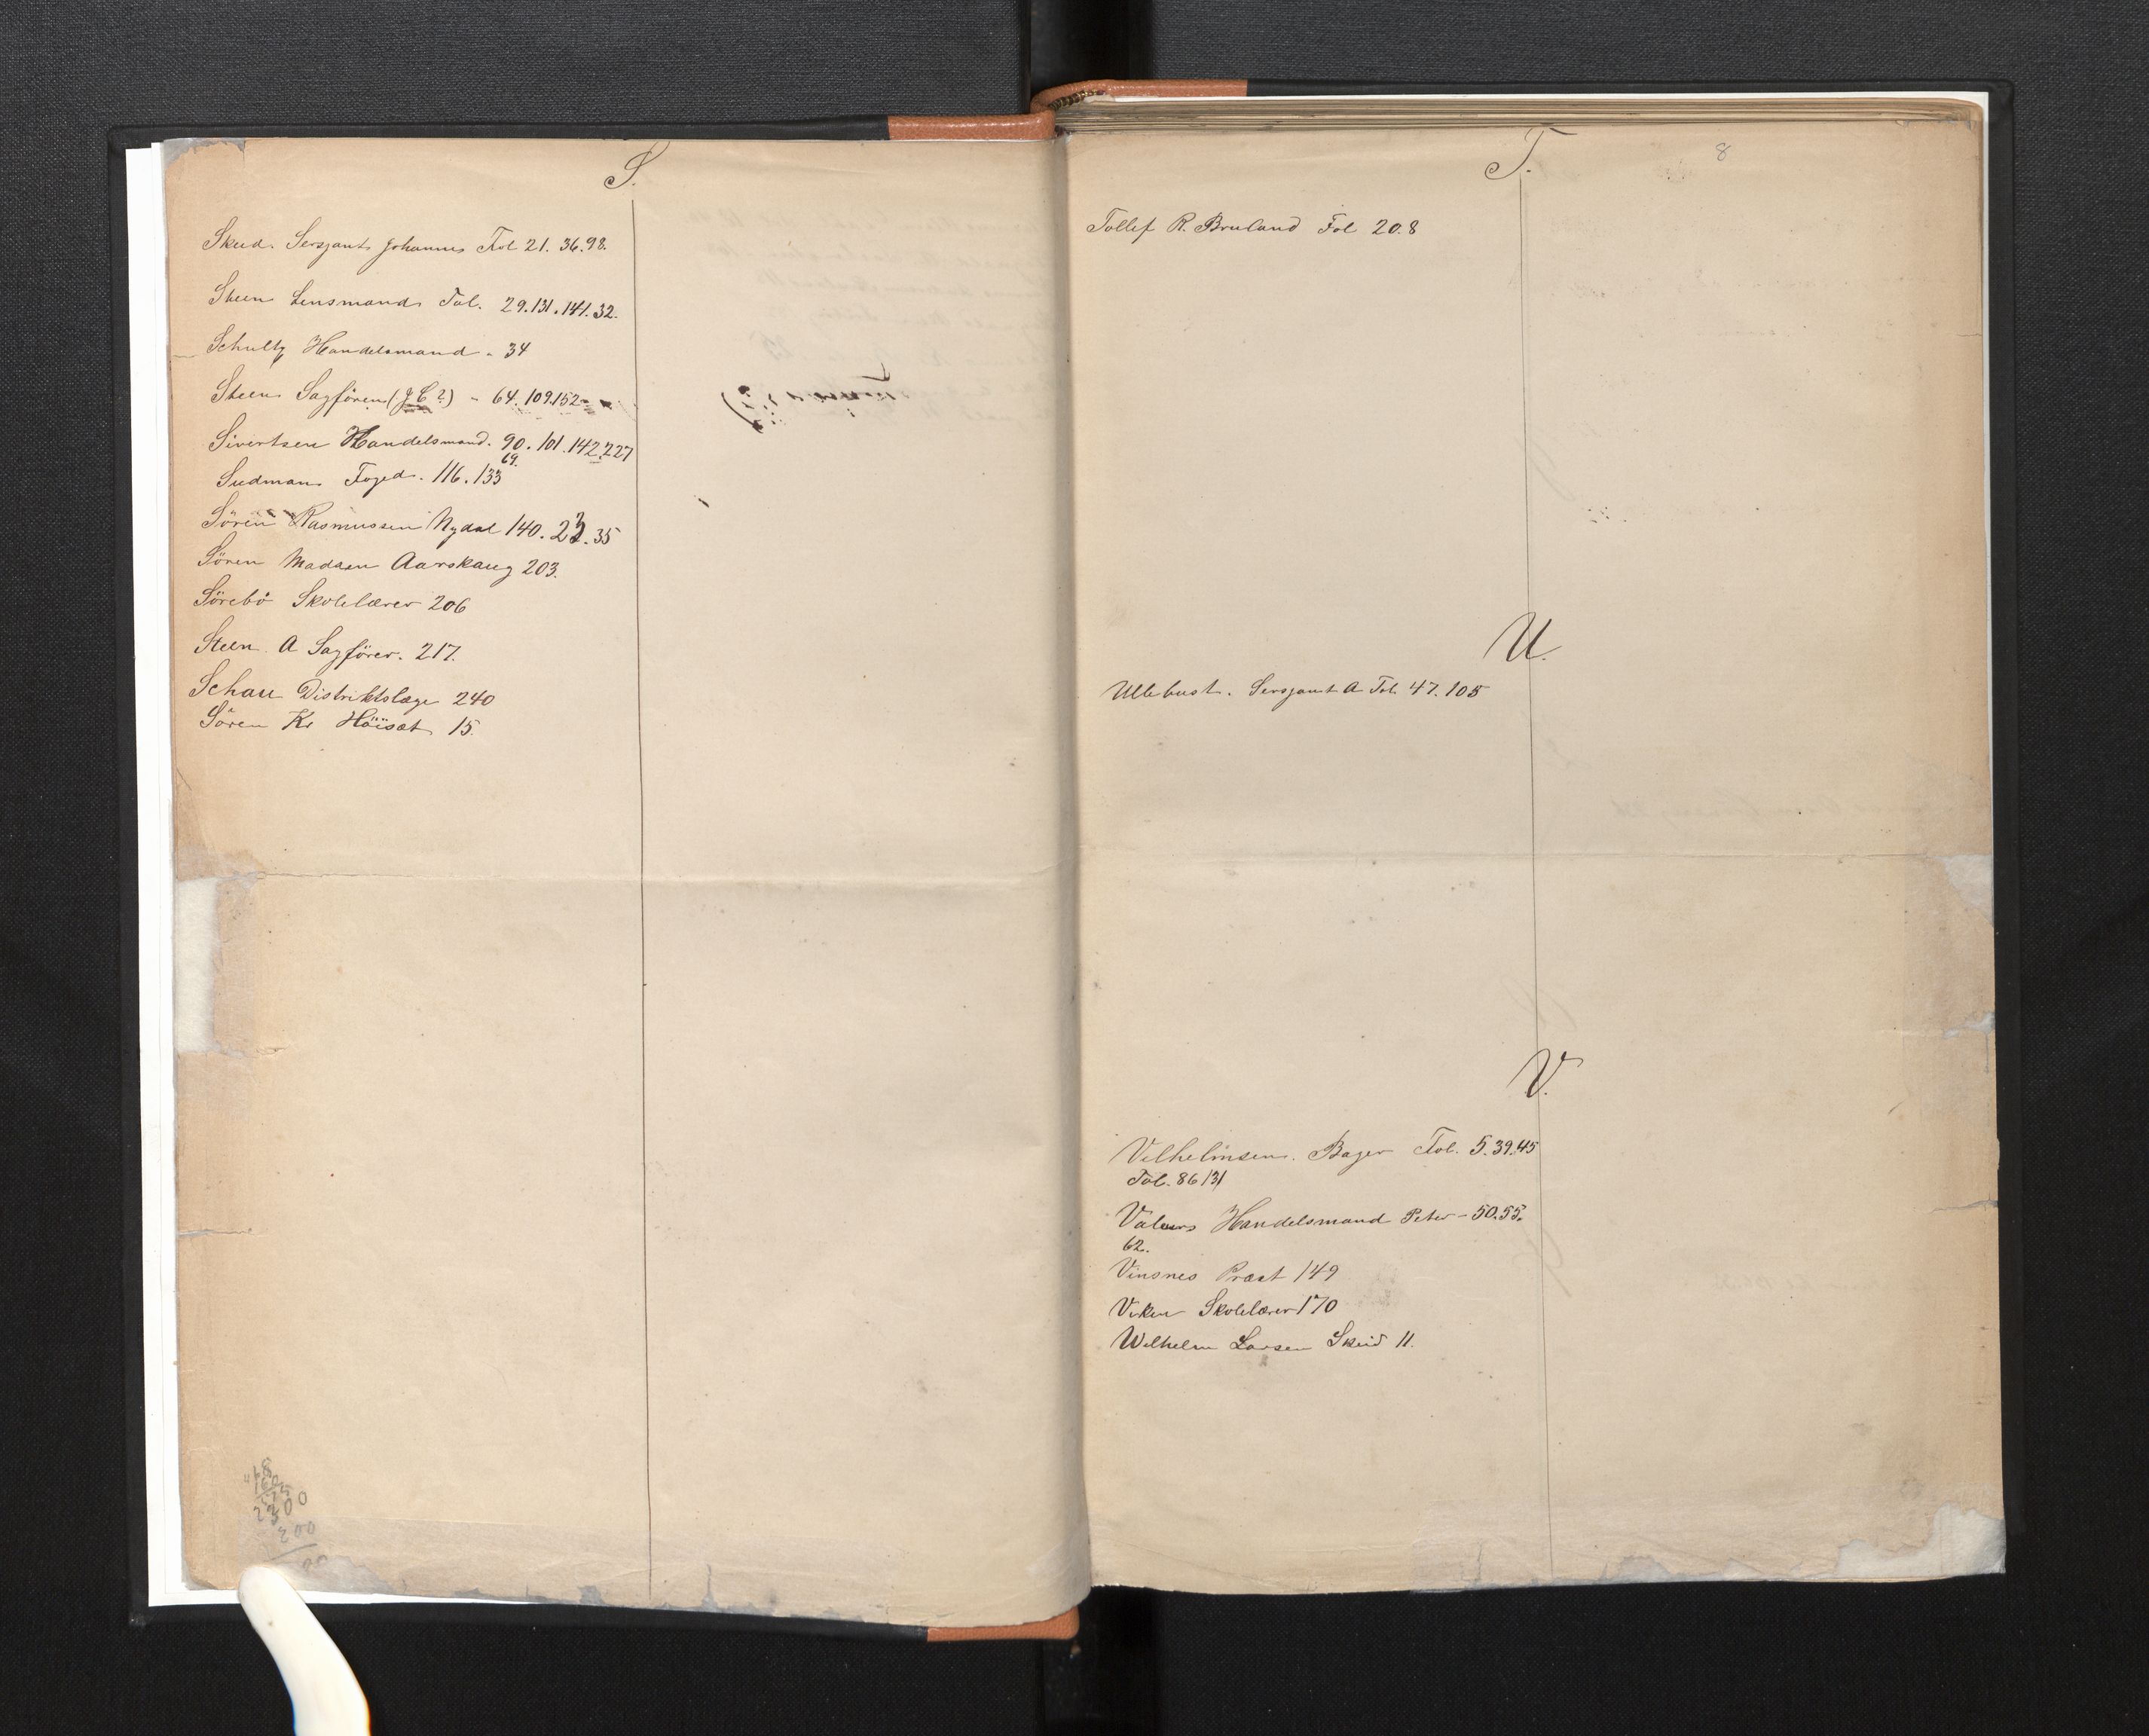 S.
Skeid. Sersjant Johannes Fol 21. 36. 98.
Steen Lensmand. Fol. 29. 131. 141. 32.
Schultz Handelsmand - 34
Steen Sagförer (J C ?) - 64. 109. 152
Sivertsen Handelsmand. 90. 101. 142. 227
69.
Sudman Foged. 116. 133
Sören Rasmussen Nydal 140. 23. 35
Sören Madsen Aarskaug 203.
Sörebö Skolelærer 206
Steen A Sagförer. 217.
Schau Distriktslæge 240
Sören Kr Höisæt 15.
T.
8
Tollef R. Bruland Fol 208
U.
Ullebust. Sersjant A Fol. 47. 105
V.
Vilhelmsen. Bager Fol. 5. 39. 45
Fol. 86 131
Valeurs Handelsmand Peter - 50. 55.
62.
Vinsnes Præst 149
Viken Skolelærer 170
Wilhelm Larsen Skeid 11.